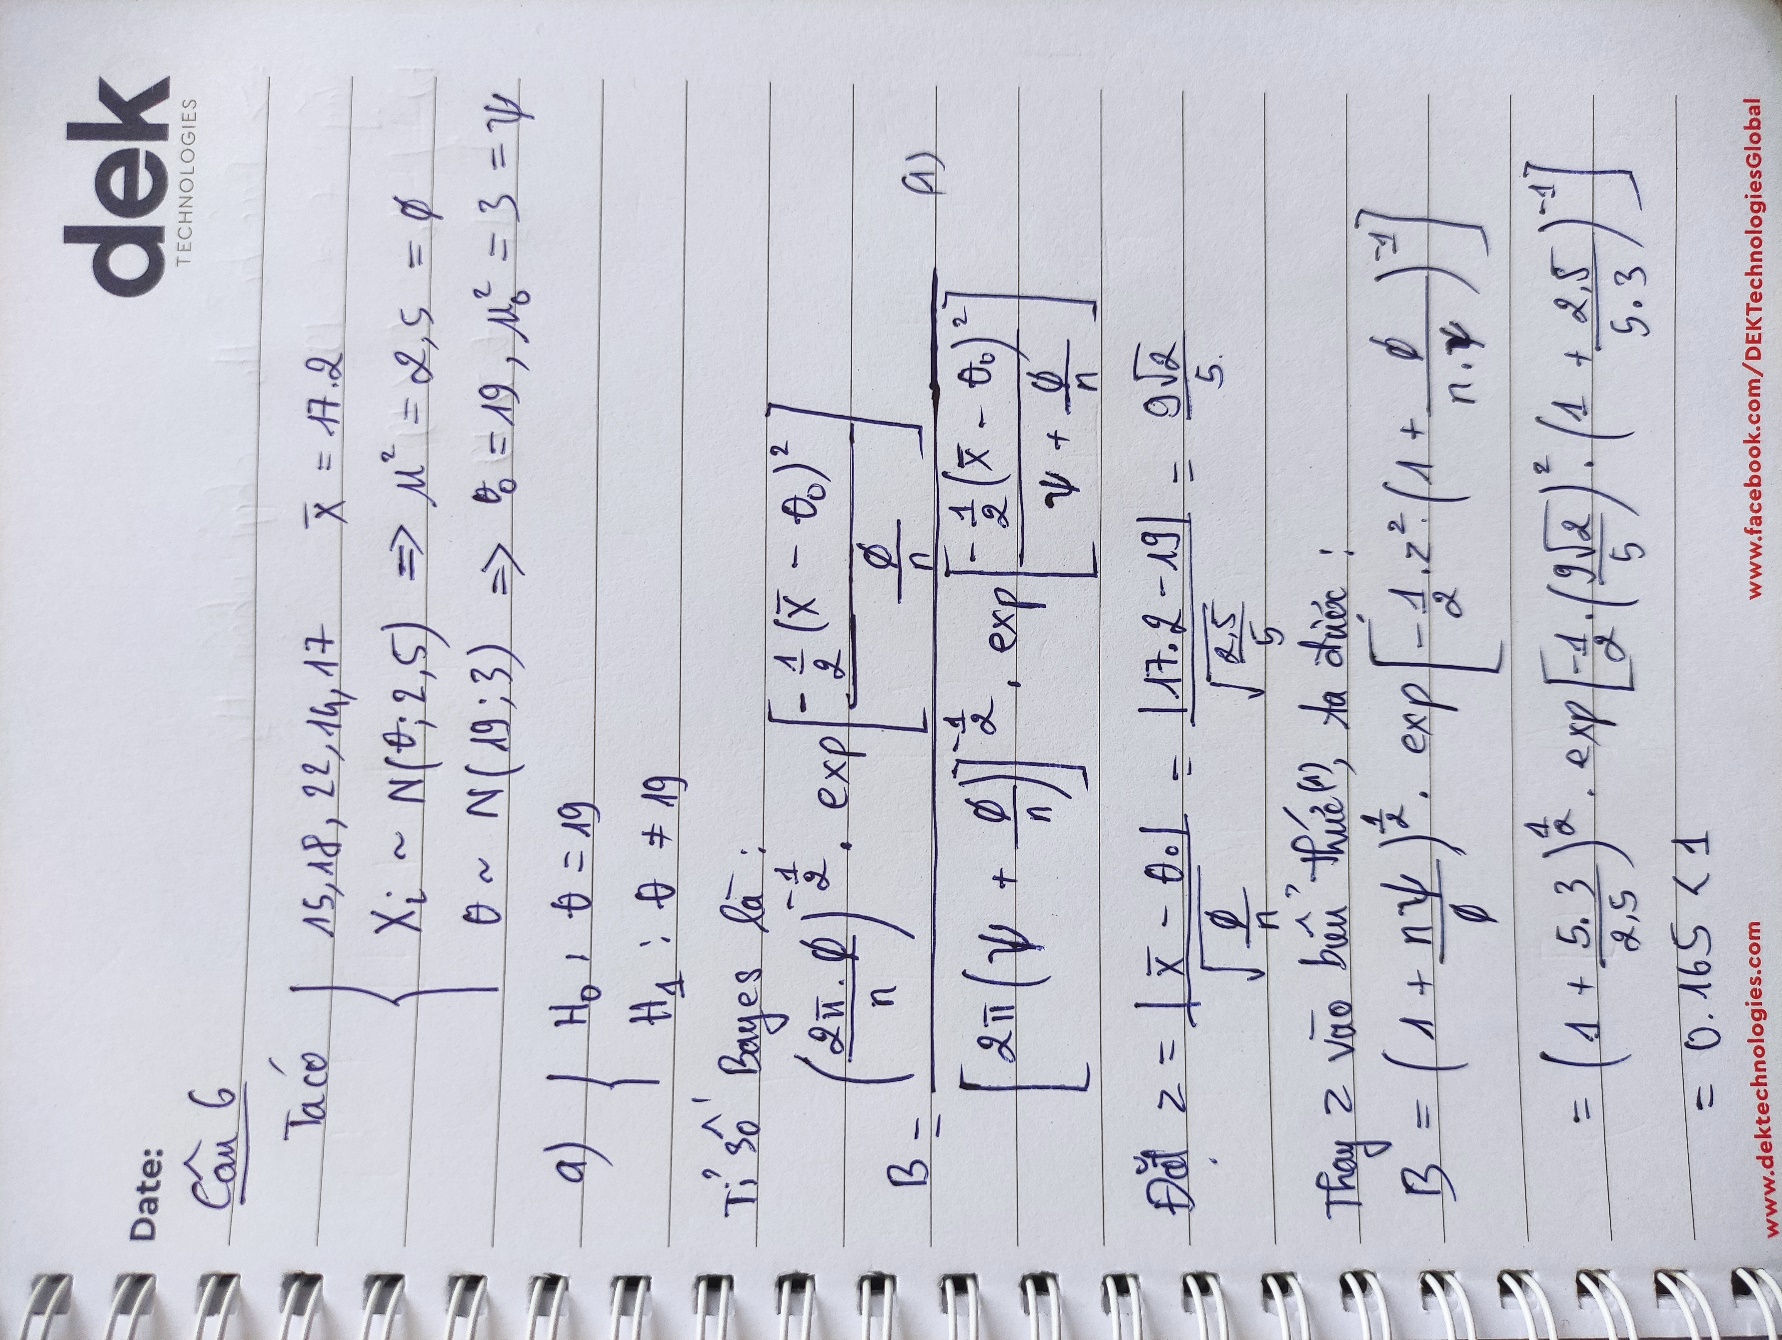 dek
TECHNOLOGIES
Date:
Câu 6
Ta có { 15, 18, 22, 14, 17   x̄ = 17.2
Xᵢ ~ N(θ; 2,5) => μ² = 2,5 = ϕ
θ ~ N(19; 3) => θ₀ = 19, μ₀² = 3 = ψ
a) { H₀ : θ = 19
H₁ : θ ≠ 19
Tỉ số Bayes là :
B = (2π.ϕ/n)^(-1/2) . exp[-1/2 (x̄ - θ₀)² / (ϕ/n)] / [2π(ψ + ϕ/n)]^(-1/2) . exp[-1/2 (x̄ - θ₀)² / (ψ + ϕ/n)] (1)
Đặt z = |x̄ - θ₀| / √(ϕ/n) = |17.2 - 19| / √(2,5/5) = 9√2/5
Thay z vào biểu thức (1), ta được :
B = (1 + nψ/ϕ)^(1/2) . exp[-1/2 . z² . (1 + ϕ/(n.ψ))^(-1)]
= (1 + 5.3/2,5)^(1/2) . exp[-1/2 . (9√2/5)² . (1 + 2,5/5.3)^(-1)]
= 0.165 < 1
www.dektechnologies.com
www.facebook.com/DEKTechnologiesGlobal